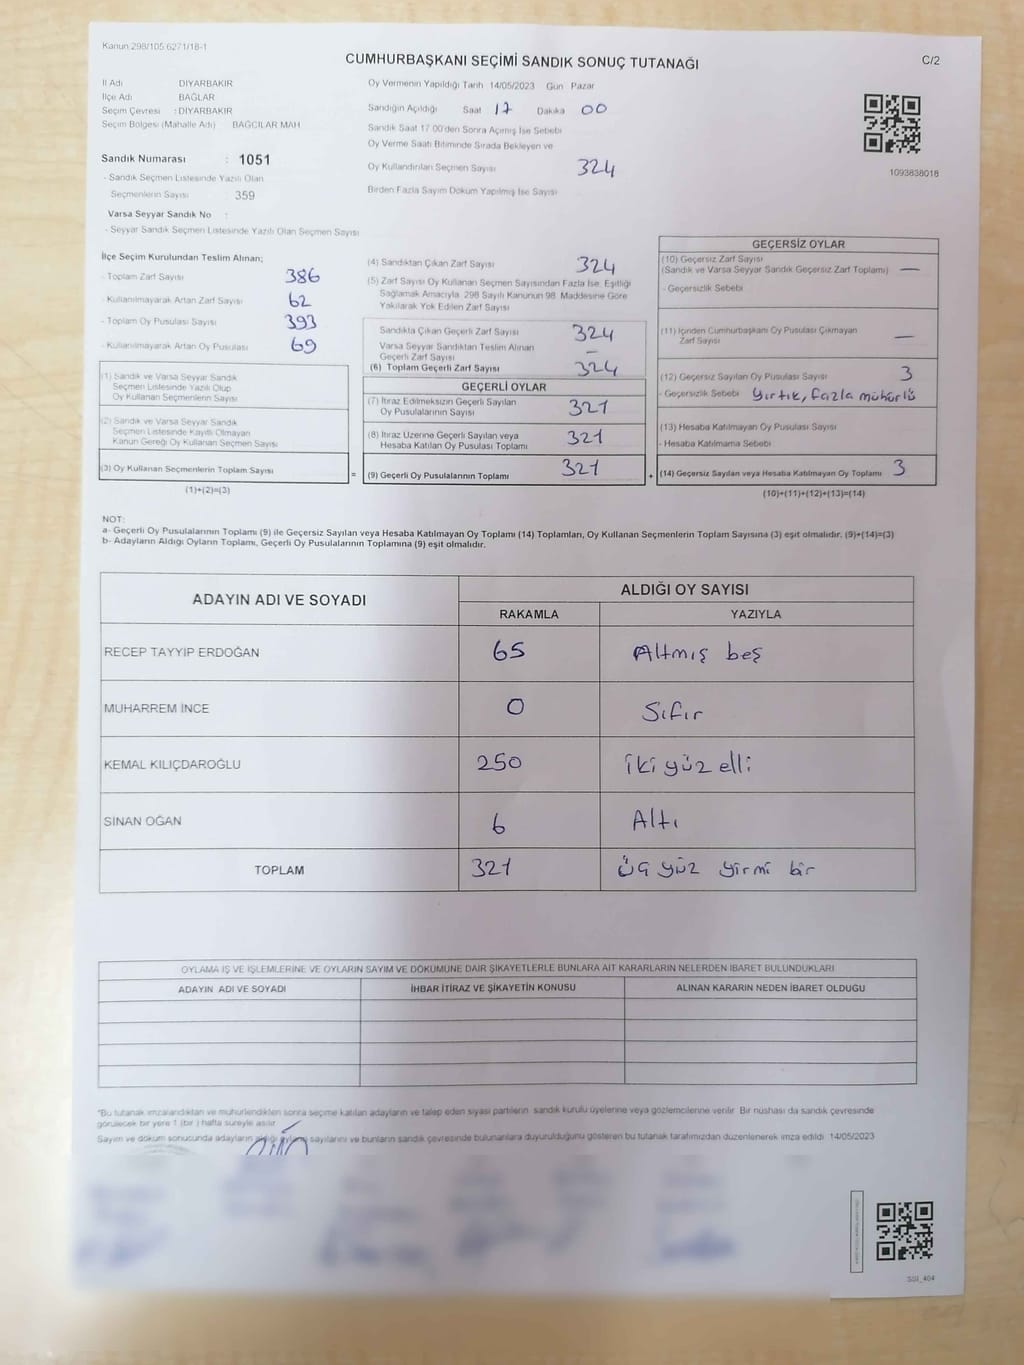 Kanun 298/105 6271/18-1
CUMHURBAŞKANI SEÇİMİ SANDIK SONUÇ TUTANAĞI
C/2
İl Adı DİYARBAKIR
İlçe Adı BAĞLAR
Seçim Çevresi : DİYARBAKIR
Seçim Bölgesi (Mahalle Adı) BAĞCILAR MAH
Sandık Numarası : 1051
- Sandık Seçmen Listesinde Yazılı Olan
Seçmenlerin Sayısı : 359
Varsa Seyyar Sandık No :
- Seyyar Sandık Seçmen Listesinde Yazılı Olan Seçmen Sayısı
Oy Vermenin Yapıldığı Tarih 14/05/2023 Gün Pazar
Sandığın Açıldığı Saat 17 Dakika 00
Sandık Saat 17 00'den Sonra Açılmış İse Sebebi
Oy Verme Saati Bitiminde Sırada Bekleyen ve
Oy Kullandırılan Seçmen Sayısı 324
Birden Fazla Sayım Döküm Yapılmış İse Sayısı
1093838018
İlçe Seçim Kurulundan Teslim Alınan;
- Toplam Zarf Sayısı 386
- Kullanılmayarak Artan Zarf Sayısı 62
- Toplam Oy Pusulası Sayısı 393
- Kullanılmayarak Artan Oy Pusulası 69
(1) Sandık ve Varsa Seyyar Sandık
Seçmen Listesinde Yazılı Olup
Oy Kullanan Seçmenlerin Sayısı
(2) Sandık ve Varsa Seyyar Sandık
Seçmen Listesinde Kayıtlı Olmayan
Kanun Gereği Oy Kullanan Seçmen Sayısı
(3) Oy Kullanan Seçmenlerin Toplam Sayısı
(1)+(2)=(3)
=
(4) Sandıktan Çıkan Zarf Sayısı 324
(5) Zarf Sayısı Oy Kullanan Seçmen Sayısından Fazla İse, Eşitliği
Sağlamak Amacıyla, 298 Sayılı Kanunun 98. Maddesine Göre
Yakılarak Yok Edilen Zarf Sayısı
Sandıkta Çıkan Geçerli Zarf Sayısı 324
Varsa Seyyar Sandıktan Teslim Alınan
Geçerli Zarf Sayısı –
(6) Toplam Geçerli Zarf Sayısı 324
GEÇERLİ OYLAR
(7) İtiraz Edilmeksizin Geçerli Sayılan
Oy Pusulalarının Sayısı 321
(8) İtiraz Üzerine Geçerli Sayılan veya
Hesaba Katılan Oy Pusulası Toplamı 321
(9) Geçerli Oy Pusulalarının Toplamı 321
+
GEÇERSİZ OYLAR
(10) Geçersiz Zarf Sayısı
(Sandık ve Varsa Seyyar Sandık Geçersiz Zarf Toplamı) —
- Geçersizlik Sebebi
(11) İçinden Cumhurbaşkanı Oy Pusulası Çıkmayan
Zarf Sayısı —
(12) Geçersiz Sayılan Oy Pusulası Sayısı 3
- Geçersizlik Sebebi Yırtık, fazla mühürlü
(13) Hesaba Katılmayan Oy Pusulası Sayısı
- Hesaba Katılmama Sebebi
(14) Geçersiz Sayılan veya Hesaba Katılmayan Oy Toplamı 3
(10)+(11)+(12)+(13)=(14)
NOT:
a- Geçerli Oy Pusulalarının Toplamı (9) ile Geçersiz Sayılan veya Hesaba Katılmayan Oy Toplamı (14) Toplamları, Oy Kullanan Seçmenlerin Toplam Sayısına (3) eşit olmalıdır. (9)+(14)=(3)
b- Adayların Aldığı Oyların Toplamı, Geçerli Oy Pusulalarının Toplamına (9) eşit olmalıdır.
ADAYIN ADI VE SOYADI ALDIĞI OY SAYISI
RAKAMLA YAZIYLA
RECEP TAYYİP ERDOĞAN 65 Altmış beş
MUHARREM İNCE 0 Sıfır
KEMAL KILIÇDAROĞLU 250 iki yüz elli
SİNAN OĞAN 6 Altı
TOPLAM 321 üç yüz yirmi bir
OYLAMA İŞ VE İŞLEMLERİNE VE OYLARIN SAYIM VE DÖKÜMÜNE DAİR ŞİKAYETLERLE BUNLARA AİT KARARLARIN NELERDEN İBARET BULUNDUKLARI
ADAYIN ADI VE SOYADI İHBAR İTİRAZ VE ŞİKAYETİN KONUSU ALINAN KARARIN NEDEN İBARET OLDUĞU
*Bu tutanak imzalandıktan ve mühürlendikten sonra seçime katılan adayların ve talep eden siyasi partilerin sandık kurulu üyelerine veya gözlemcilerine verilir. Bir nüshası da sandık çevresinde
görülecek bir yere 1 (bir ) hafta süreyle asılır.
Sayım ve döküm sonucunda adayların aldığı oyların sayılarını ve bunların sandık çevresinde bulunanlara duyurulduğunu gösteren bu tutanak tarafımızdan düzenlenerek imza edildi. 14/05/2023
SSI_404